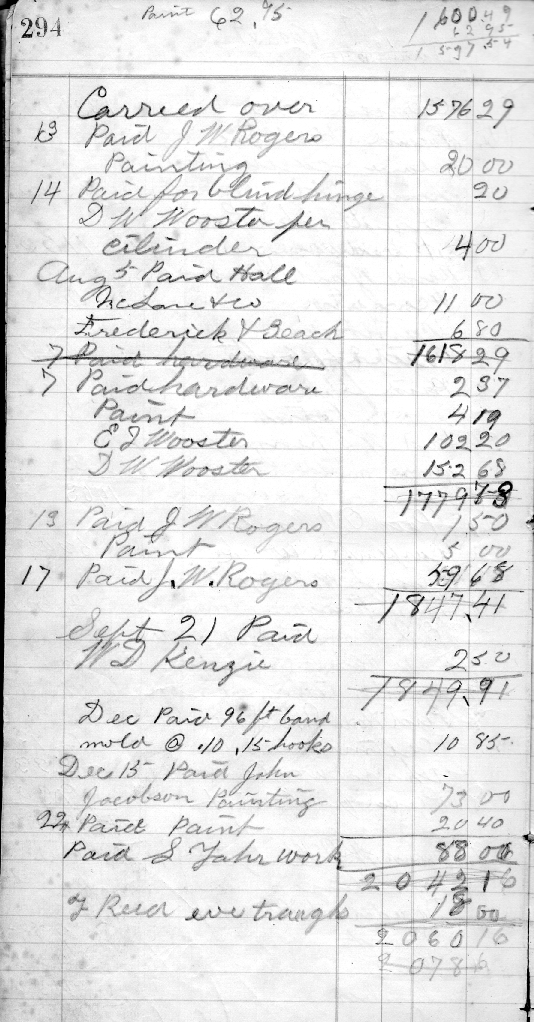 294
Paint 62.75
1600.49
62.95
1597.54
Carreed over 1576 29
13 Paid J W Rogers
Painting 20 00
14 Paid for blind hinge 20
D W Wooster per
cilinder 4 00
Aug 5 Paid Hall
& co 11 00
Frederick & Beach 6 80
7 Paid hardware 1618 29
7 Paid hardware 2 37
Paint 4 19
E J Wooster 102 20
D W Wooster 152 68
1779 78
13 Paid J W Rogers 1 50
Paint 5 00
17 Paid J. W. Rogers 59 68
1847.41
Sept 21 Paid
W D Kenzie 2 50
1849.91
Dec Paid 96 ft band
mold @ .10, .15 hooks 10 85
Dec 15 Paid John
Jacobson Painting 73 00
22 Paid Paint 20 40
Paid S Yahr work 88 00
2042 16
F Reed eve troughs 18 00
2060 16
2078 16